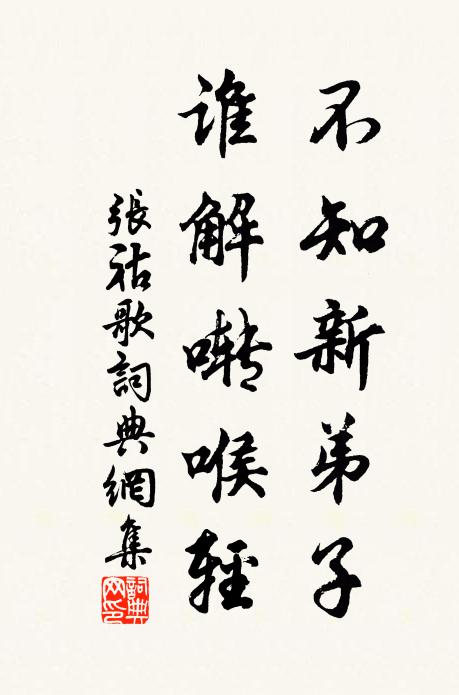 不知新弟子
誰解囀喉輕
張祜歌詞典網集
詞典网印